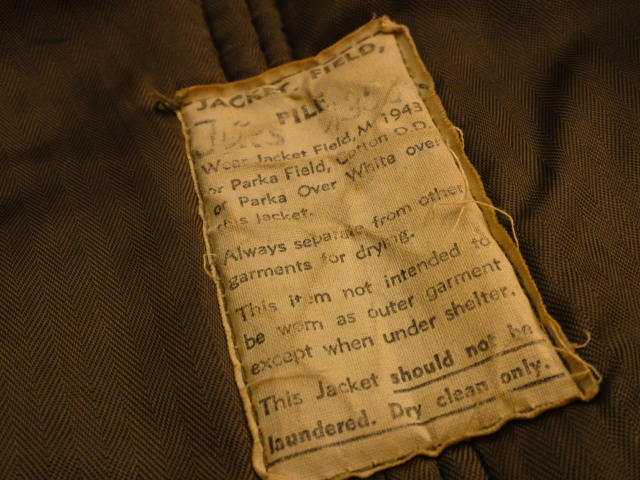 JACKET, FIELD,
PILE
Wear Jacket Field, M 1943
or Parka Field, Cotton O.D.
or Parka Over White over
this jacket.
Always separate from other
garments for drying.
This item not intended to
be worn as outer garment
except when under shelter.
This Jacket should not be
laundered. Dry clean only.